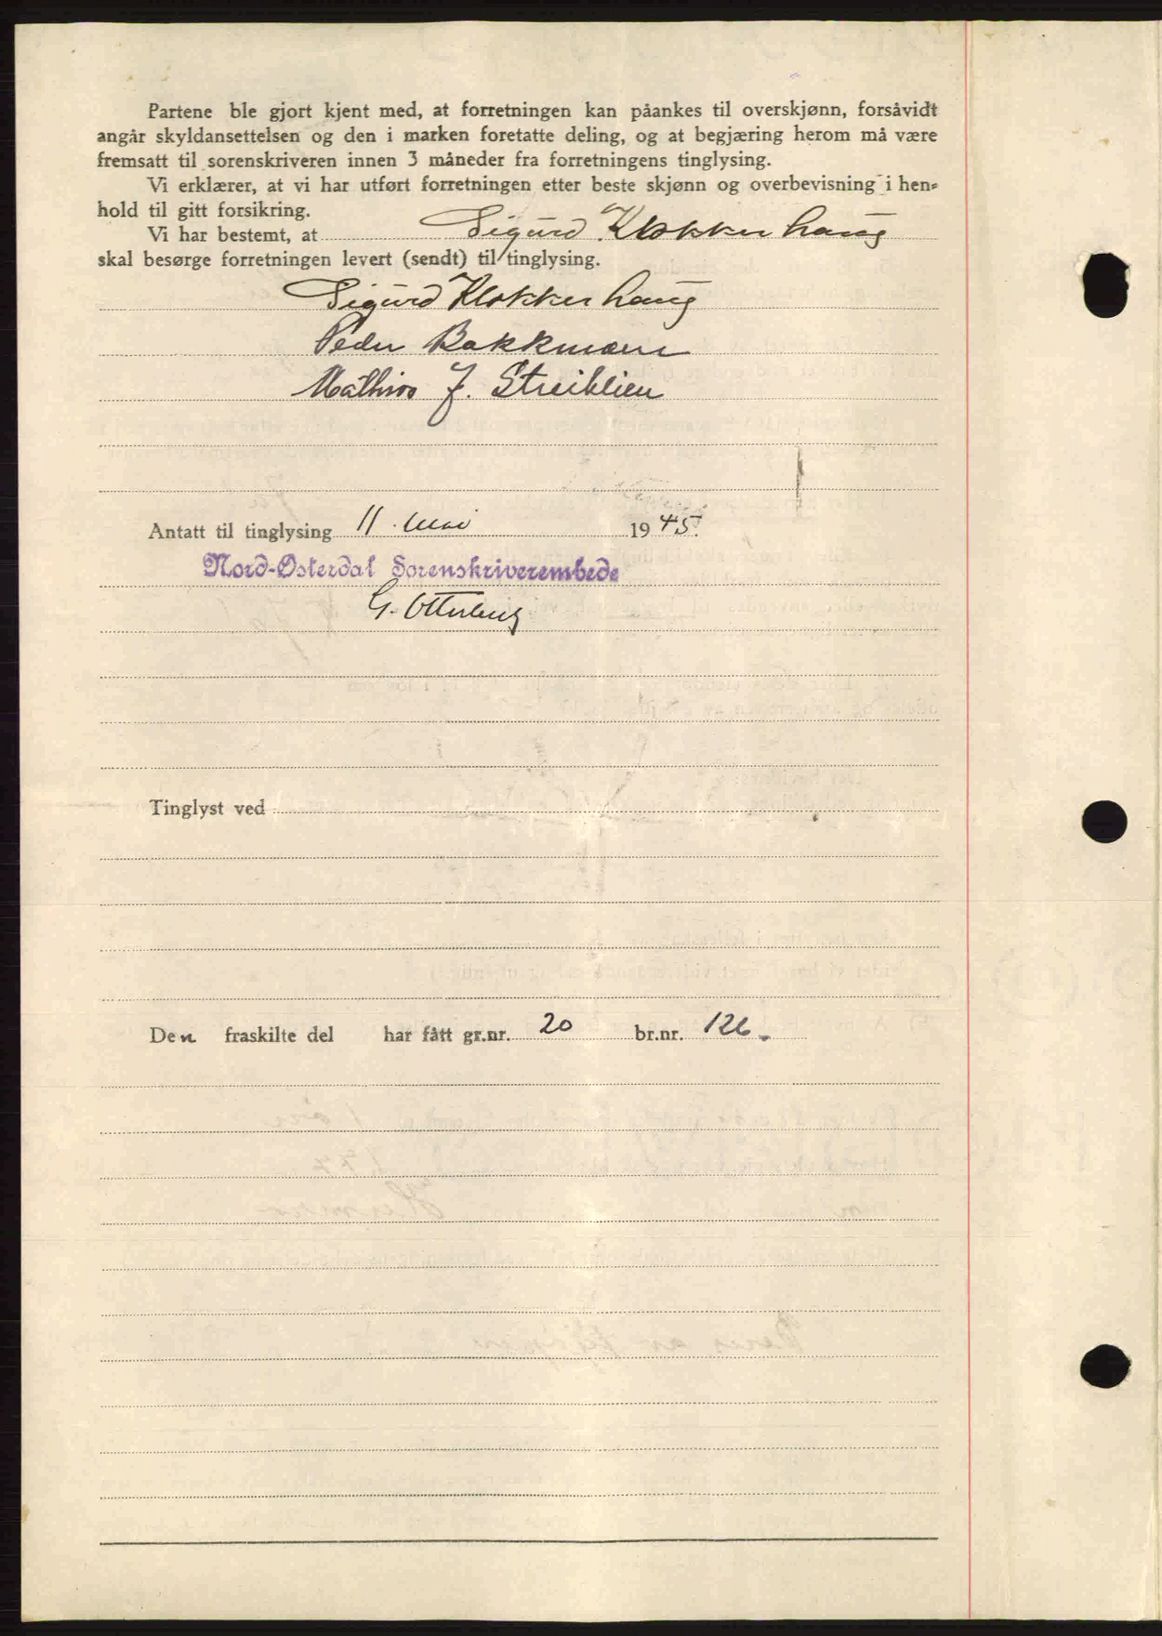 Partene ble gjort kjent med, at forretningen kan påankes til overskjønn, forsåvidt
angår skyldansettelsen og den i marken foretatte deling, og at begjæring herom må være
fremsatt til sorenskriveren innen 3 måneder fra forretningens tinglysing.
Vi erklærer, at vi har utført forretningen etter beste skjønn og overbevisning i hen-
hold til gitt forsikring.
Vi har bestemt, at Sigurd Klokkerhaug
skal besørge forretningen levert (sendt) til tinglysing.
Sigurd Klokkerhaug
Peder Bakkmoen
Mathias J. Streitlien
Antatt til tinglysing 11. mai 1945.
Nord-Østerdal Sorenskriverembede
G. Otterberg
Tinglyst ved
Den fraskilte del har fått gr.nr. 20 br.nr. 126.